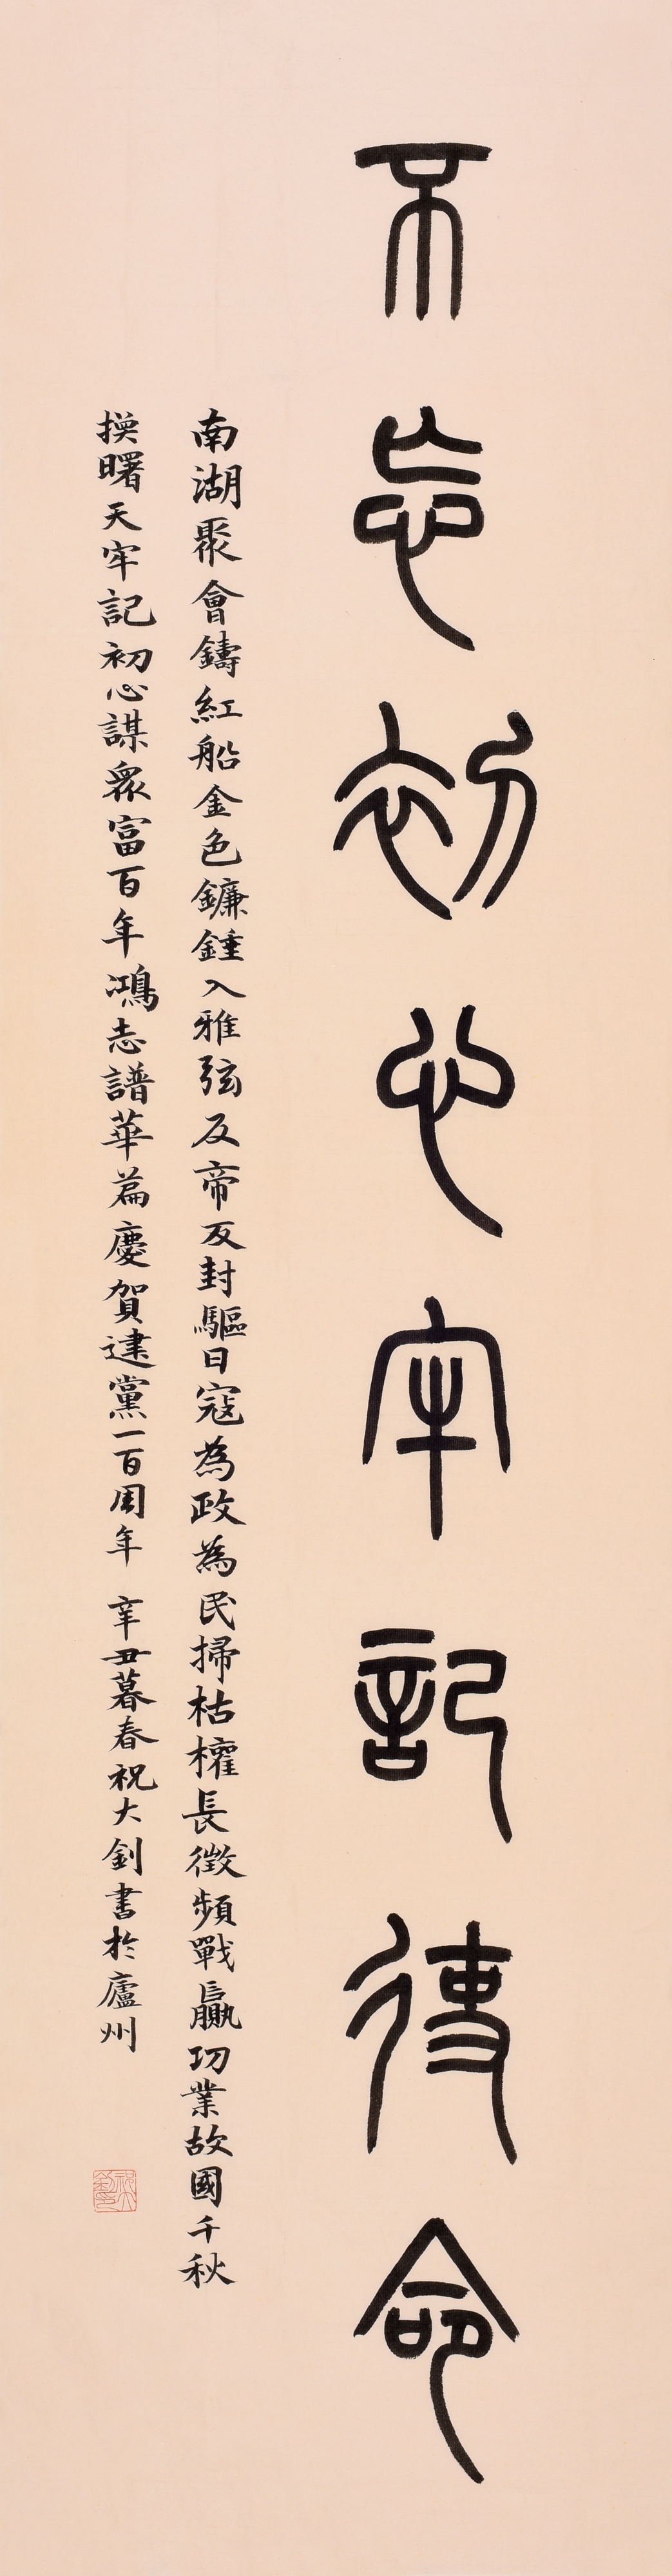 不忘初心牢記使命
南湖聚會鑄紅船金色鐮錘入雅弦反帝反封驅日寇為政為民掃枯權長徵頻戰贏功業故國千秋
換曙天牢記初心謀眾富百年鴻志譜華篇慶賀建黨一百周年 辛丑暮春祝大釗書於廬州